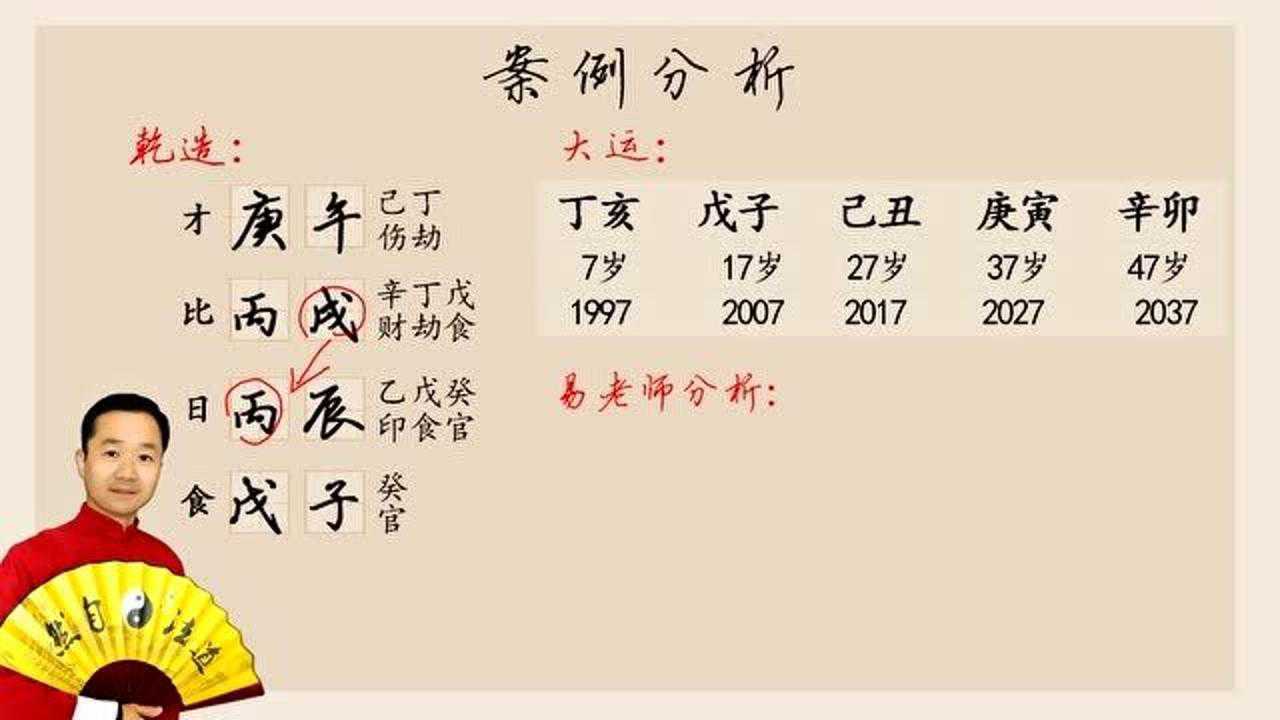 案例分析
乾造：
大运：
才 庚 午 己丁
伤劫
比 丙 戌 辛丁戊
财劫食
日 丙 辰 乙戊癸
印食官
食 戊 子 癸
官
丁亥 戊子 己丑 庚寅 辛卯
7岁 17岁 27岁 37岁 47岁
1997 2007 2017 2027 2037
易老师分析：
然自法道